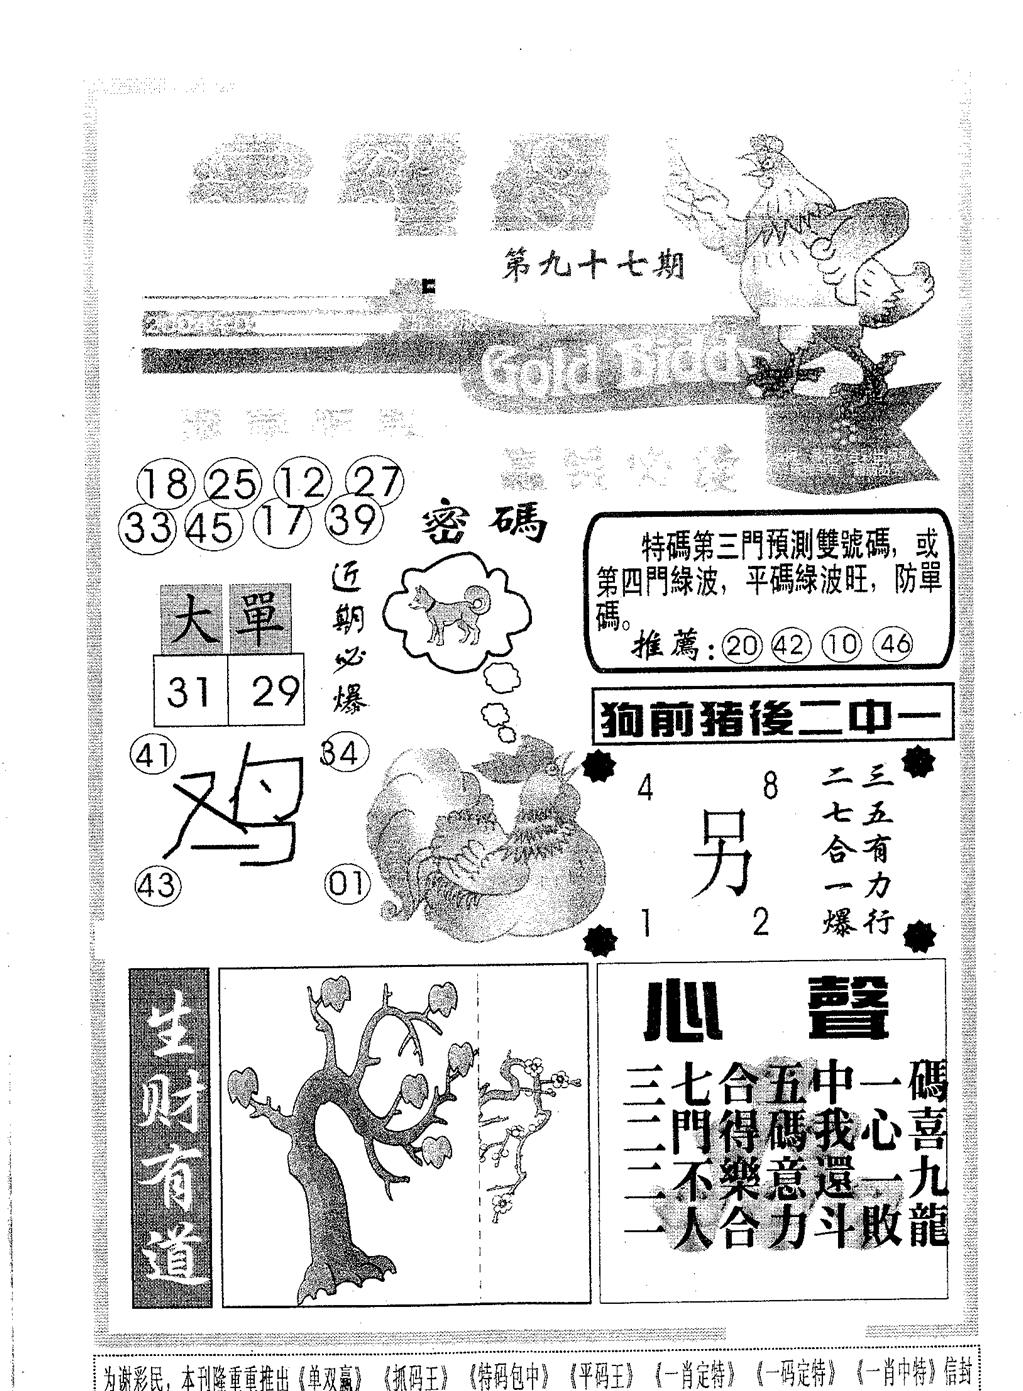 第九十七期
Gold Bidd
18 25 12 27
33 45 17 39
密碼
特碼第三門預測雙號碼，或
第四門綠波，平碼綠波旺，防單
碼。
推薦：20 42 10 46
大 單
31 29
近期必爆
狗前猪後二中一
41 34
鸡
43 01
4 8
另
1 2
三五有力行
二七合一爆
生财有道
心聲
三七合五中一碼
二門得碼我心喜
二不樂意還一九
一人合力斗敗龍
为谢彩民，本刊隆重重推出《单双赢》《抓码王》《特码包中》《平码王》《一肖定特》《一码定特》《一肖中特》信封